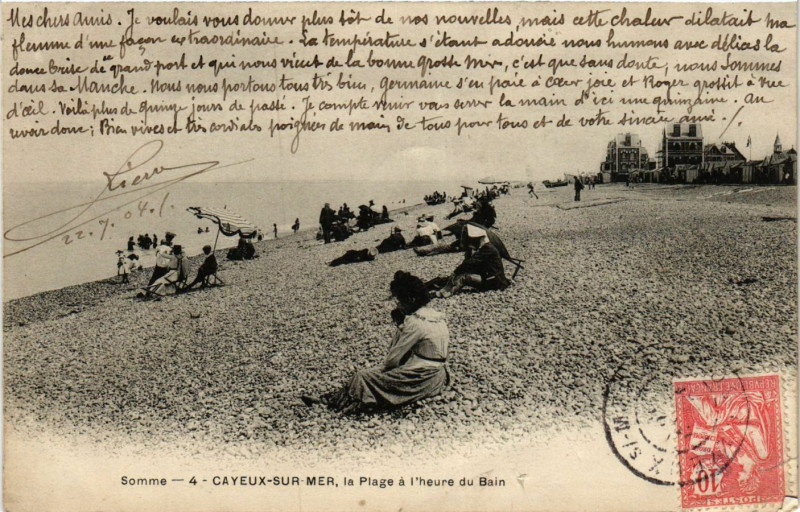 Mes chers Amis. Je voulais vous donner plus tôt de nos nouvelles, mais cette chaleur dilatait ma
flemme d'une façon extraordinaire. La température s'étant adoucie nous humons avec délices la
douce brise de ce grand port et qui nous vient de la bonne grosse mer, c'est que sans doute, nous sommes
dans sa Manche. Nous nous portons tous très bien, Germaine s'en paie à cœur joie et Roger grossit à vue
d'œil. Voilà plus de quinze jours de passé. Je compte venir vous serrer la main d'ici une quinzaine. Au
revoir donc; Bien vives et très cordiales poignées de main de tous pour tous et de votre sincère ami.
22.7.04.
Somme — 4 - CAYEUX-SUR-MER, la Plage à l'heure du Bain
REPUBLIQUE FRANÇAISE
10
POSTES